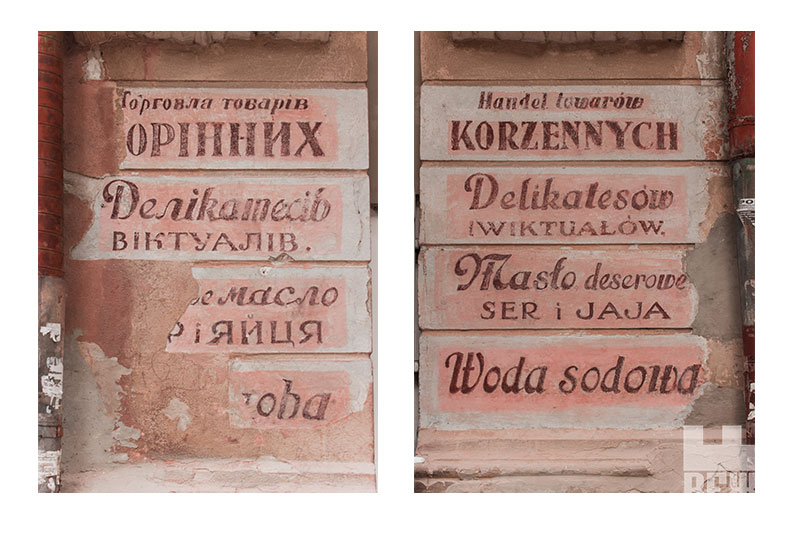 Торговла товарів
ОРІННИХ
Делікатесів
ВІКТУАЛІВ.
масло
ЯЙЦЯ
Handel towarów
KORZENNYCH
Delikatesów
I WIKTUAŁÓW.
Masło deserowe
SER i JAJA
Woda sodowa